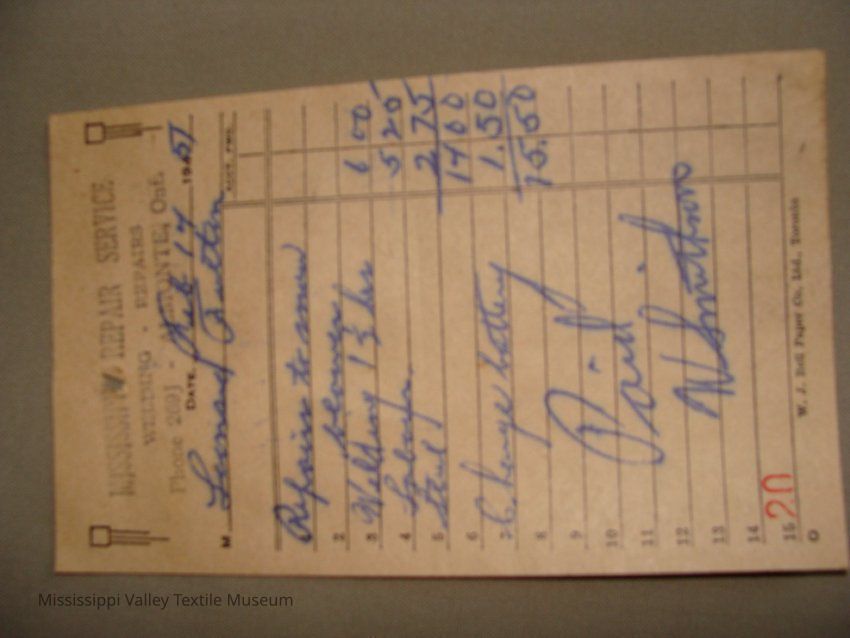 MISSISSIPPI REPAIR SERVICE
WELDING - REPAIRS
Phone 269J - ALMONTE, Ont.
DATE Feb 17 1951
M Leonard Fulton
ACCT. FWD.
Repairs to snow
2 blower
3 Welding 1½ hrs 6 00
4 Labour 5 25
5 Steel 2 75
6 14 00
7 Charge battery 1.50
8 15.50
9
10 Paid
11
12 W Smithson
13
14
15
20
W. J. Bell Paper Co., Ltd., Toronto
Mississippi Valley Textile Museum